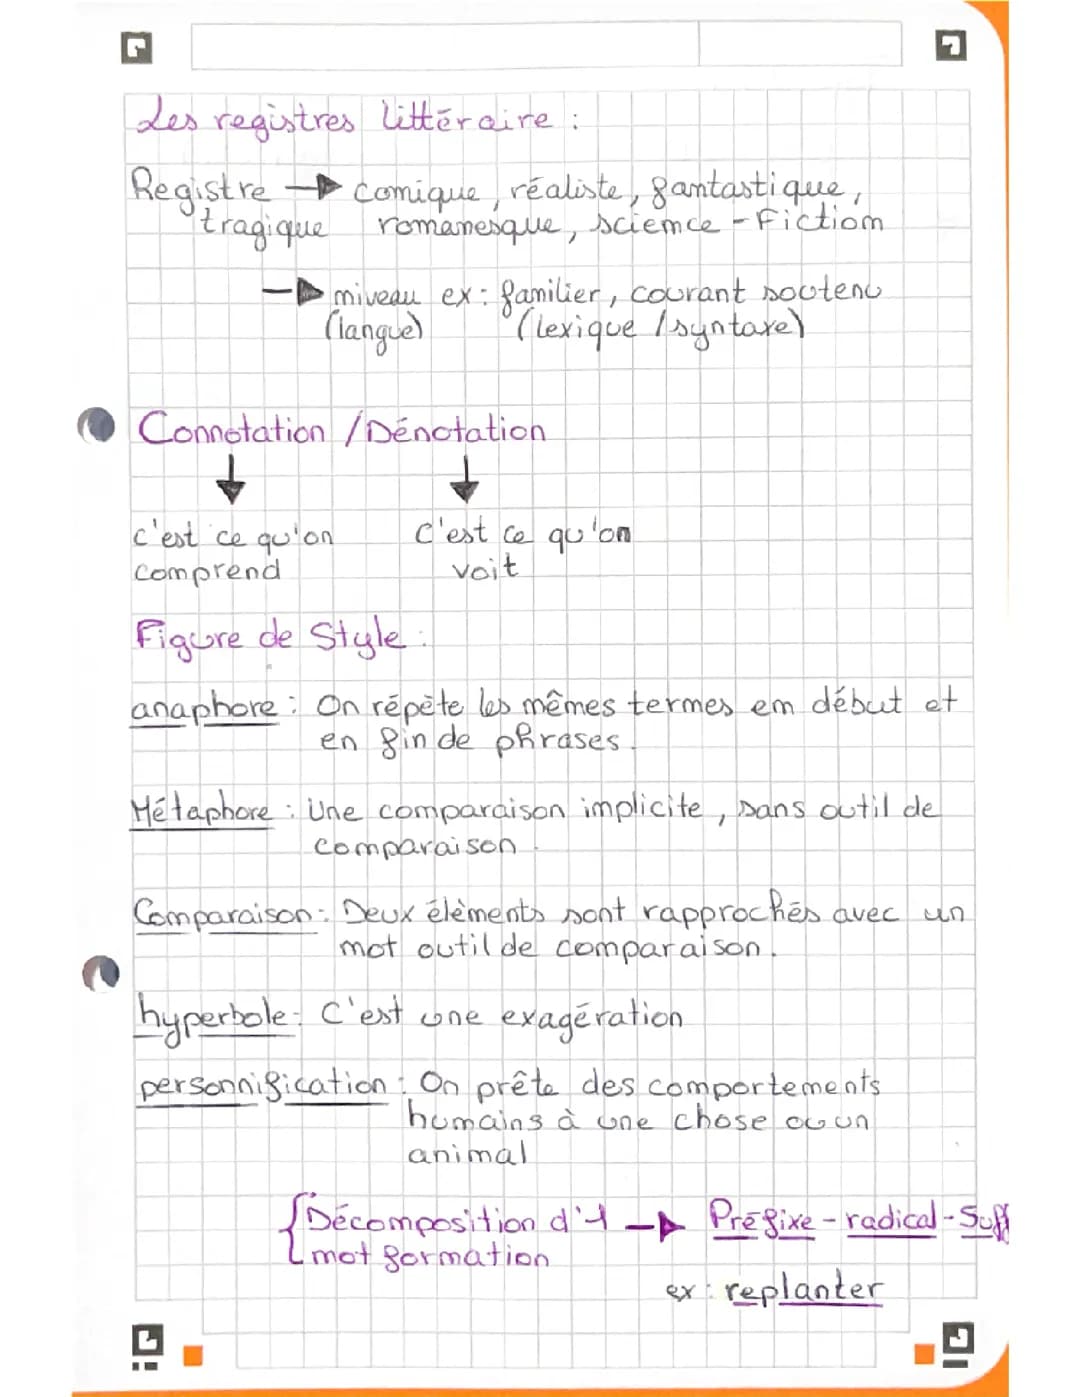 Les registres littéraire :
Registre → comique, réaliste, fantastique,
tragique romanesque, science-Fiction
→ niveau ex : familier, courant soutenu
(langue) (lexique / syntaxe)
Connotation / Dénotation
↓ ↓
c'est ce qu'on C'est ce qu'on
comprend voit
Figure de Style :
anaphore : On répète les mêmes termes en début et
en fin de phrases.
Métaphore : Une comparaison implicite, sans outil de
comparaison.
Comparaison : Deux élèments sont rapprochés avec un
mot outil de comparaison.
hyperbole : C'est une exagération
personnification : On prête des comportements
humains à une chose ou un
animal
{Décomposition d'1 → Préfixe - radical - Suff
mot formation
ex : replanter